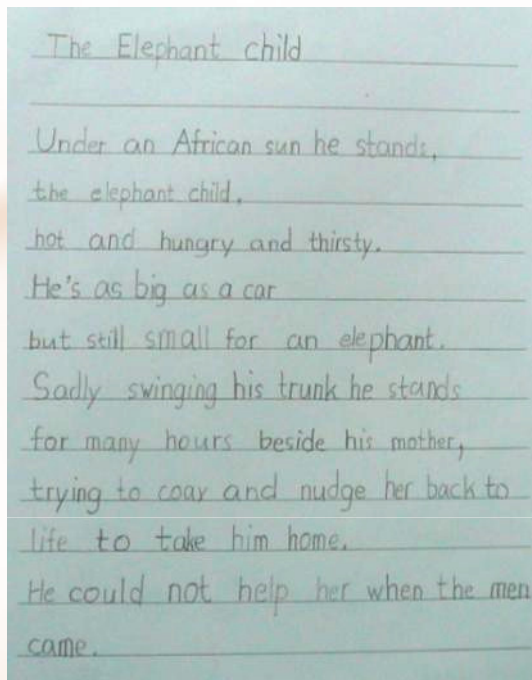 The Elephant child
Under an African sun he stands,
the elephant child,
hot and hungry and thirsty.
He's as big as a car
but still small for an elephant.
Sadly swinging his trunk he stands
for many hours beside his mother,
trying to coax and nudge her back to
life to take him home.
He could not help her when the men
came.